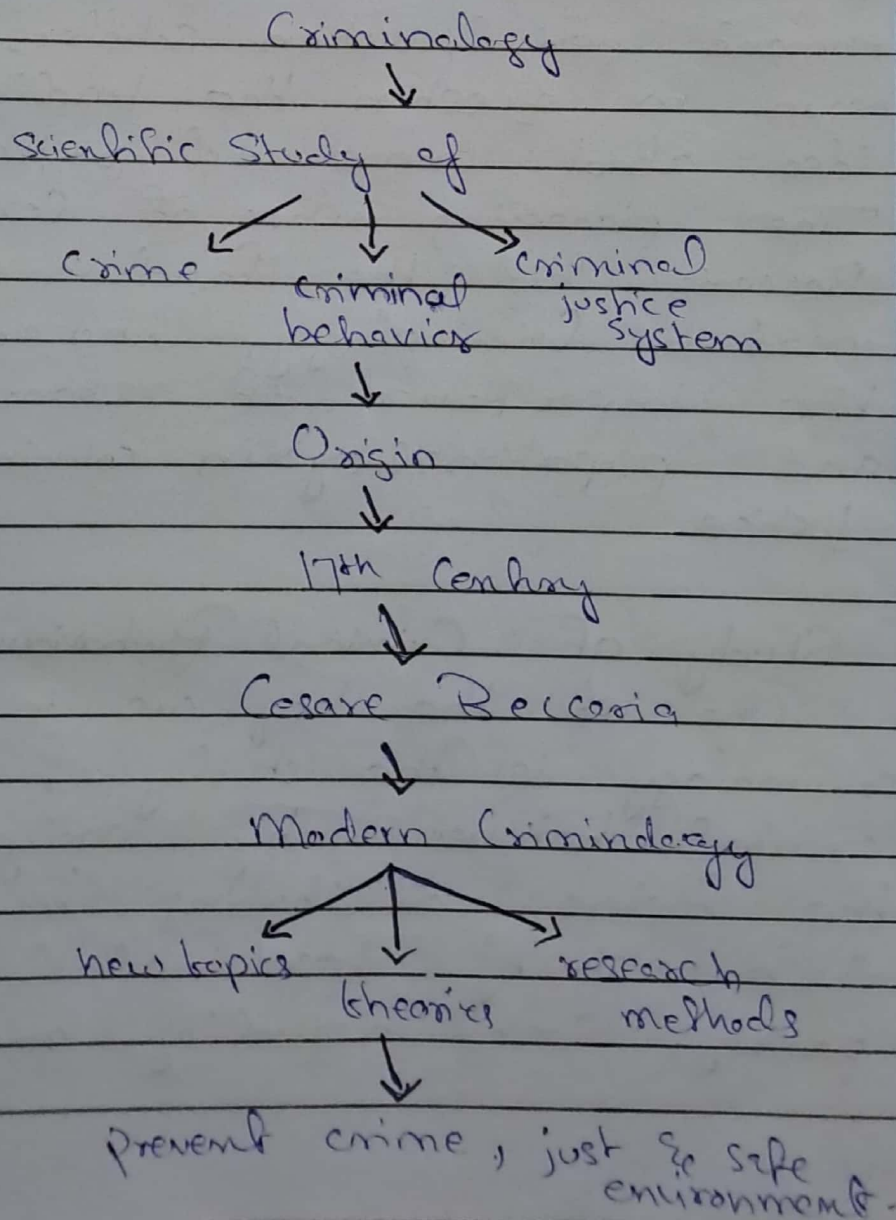 Criminology
Scientific Study of
Crime
criminal
behavior
criminal
justice
system
Origin
17th Century
Cesare Beccaria
Modern Criminology
new topics
theories
research
methods
prevent crime, just & safe
environment